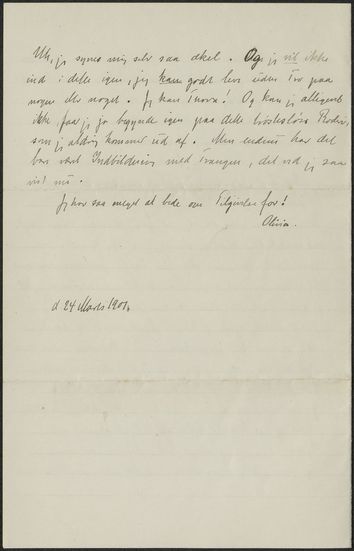 Uh, jeg synes mig selv saa ækel. Og jeg vil ikke
ind i dette igen, jeg kan godt leve uden Tro paa
nogen eller noget. Jeg kan Thora! Og kan jeg alligevel
ikke, faar jeg jo begynde igen paa dette trøstesløse
som jeg aldrig kommer ud af. Men endnu har det
bare været Indbildning med Trangen, det ved jeg saa
vist nu.
Jeg har saa meget at bede om Tilgivelse for!
Olivia.
d 24 Marts 1901.